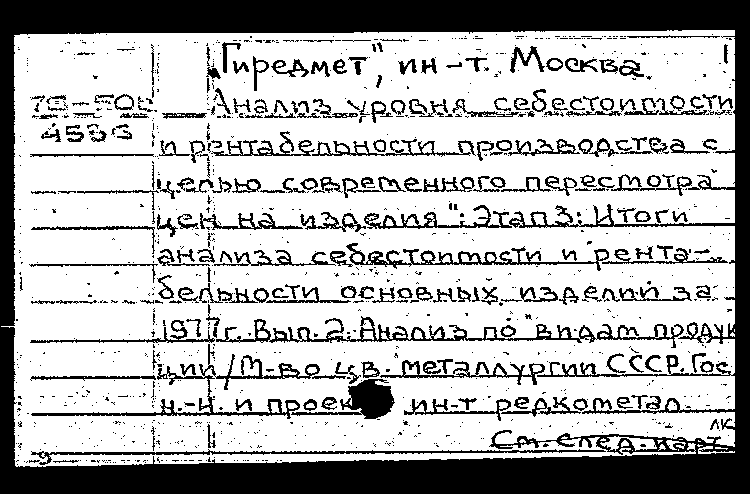 "Гиредмет", ин-т. Москва.
Анализ уровня себестоимости
4583
и рентабельности производства с
целью современного пересмотра
цен на изделия": Этап 3: Итоги
анализа себестоимости и рента-
бельности основных изделий за
1977г. Вып. 2. Анализ по видам продук
ции / М-во цв. металлургии СССР. Гос
н.-и. и проек ин-т редкометал.
См. след. карт
9